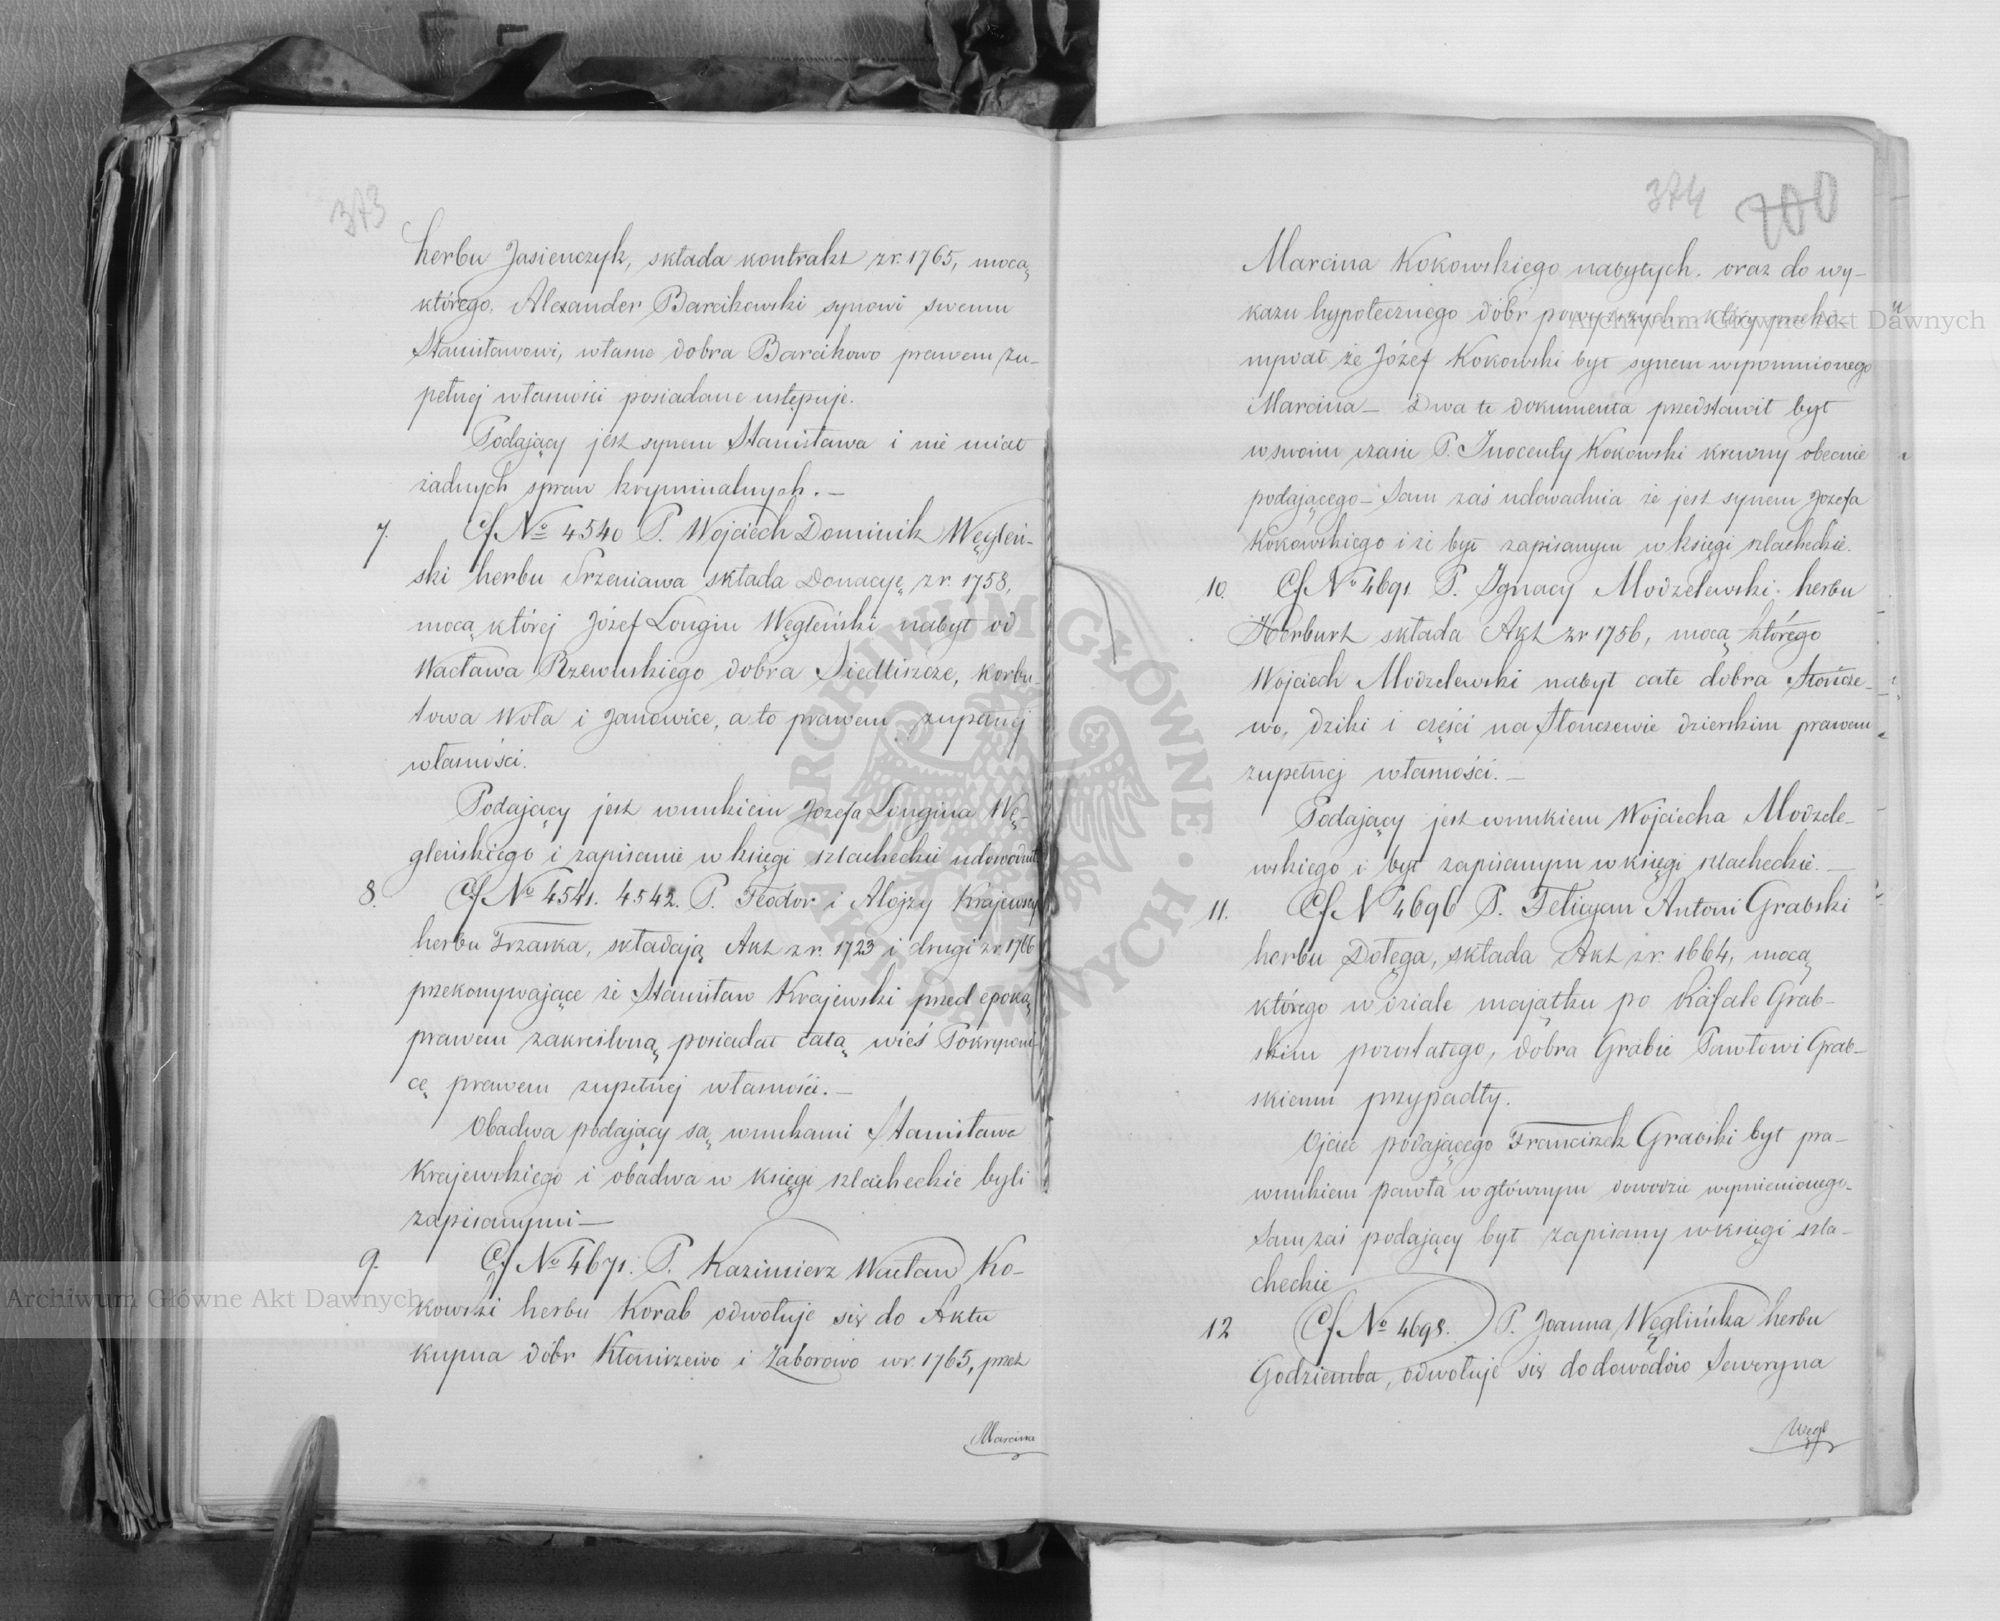 373
herbu Jasienczyk, składa kontrakt z r. 1765, mocą
którego, Alexander Barcikowski synowi swemu
Stanisławowi, własne dobra Barcikowo prawem zu-
pełnej własności posiadane ustępuje.
Podający jest synem Stanisława i nie miał
żadnych spraw kryminalnych. —
7. Cf No 4540 P. Wojciech Dominik Węgleń-
ski herbu Srzeniawa składa Donacyę z r. 1758,
mocą której Józef Longin Węgleński nabył od
Wacława Rzewuskiego dobra Siedliszcze, Korbu-
towa Wola i Janowice, a to prawem zupełnej
własności.
Podający jest wnukiem Józefa Longina Wę-
gleńskiego i zapisanie w księgi szlacheckie udowodnił
8. Cf No 4541. 4542. P. Teodor i Alojzy Krajewscy
herbu Trzaska, składają Akt z r. 1723 i drugi z r. 1766
przekonywające że Stanisław Krajewski przed epoką
prawem zakreśloną posiadał całą wieś Pokrzywni-
cę prawem zupełnej własności. —
Obadwa podający są wnukami Stanisława
Krajewskiego i obadwa w księgi szlacheckie byli
zapisanymi —
9. Cf No 4671. P. Kazimierz Wacław Ko-
kowski herbu Korab odwołuje się do Aktu
kupna dóbr Kłoniszewo i Zaborowo w r. 1765, przez
Marcina
374 700
Marcina Kokowskiego nabytych. oraz do wy-
kazu hypotecznego dóbr powyższych, który przeko-
nywał że Józef Kokowski był synem wspomnionego
Marcina — Dwa te dokumenta przedstawił był
w swoim czasie P. Inocenty Kokowski krewny obecnie
podającego — Sam zaś udowadnia że jest synem Józefa
Kokowskiego i że był zapisanym w księgi szlacheckie.
10. Cf No 4691 P. Ignacy Modzelewski herbu
Herburt składa Akt z r 1756, mocą którego
Wojciech Modzelewski nabył całe dobra Słończe-
wo, dziki i części na Słonczewie dzierskim prawem
zupełnej własności. —
Podający jest wnukiem Wojciecha Modzele-
wskiego i był zapisanym w księgi szlacheckie. —
11. Cf N 4696 P. Felicyan Antoni Grabski
herbu Dołęga, składa Akt z r. 1664, mocą
którego w dziale majątku po Rafale Grab-
skim pozostałego, dobra Grabie Pawłowi Grab-
skiemu przypadły.
Ojciec podającego Franciszek Grabski był pra-
wnukiem Pawła w głównym dowodzie wymienionego-
Sam zaś podający był zapisany w księgi szla-
checkie
12 Cf No 4698. P. Joanna Węglińska herbu
Godziemba, odwołuje się do dowodów Seweryna
Węgl
Archiwum Główne Akt Dawnych
Archiwum Główne Akt Dawnych
ARCHIWUM GŁÓWNE AKT DAWNYCH